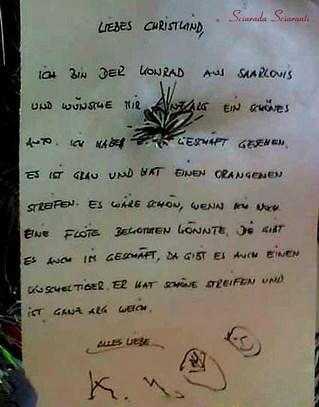 Sciarada Sciaranti
LIEBES CHRISTKIND,
ICH BIN DER KONRAD AUS SAARLOUIS
UND WÜNSCHE MIR GANZ ARG EIN SCHÖNES
AUTO. ICH HABE ES GESCHÄFT GESEHEN.
ES IST GRAU UND HAT EINEN ORANGENEN
STREIFEN. ES WÄRE SCHÖN, WENN ICH NOCH
EINE FLÖTE BEKOMMEN KÖNNTE, DIE GIBT
ES AUCH IM GESCHÄFT, DA GIBT ES AUCH EINEN
KUSCHELTIGER. ER HAT SCHÖNE STREIFEN UND
IST GANZ ARG WEICH.
ALLES LIEBE
K.